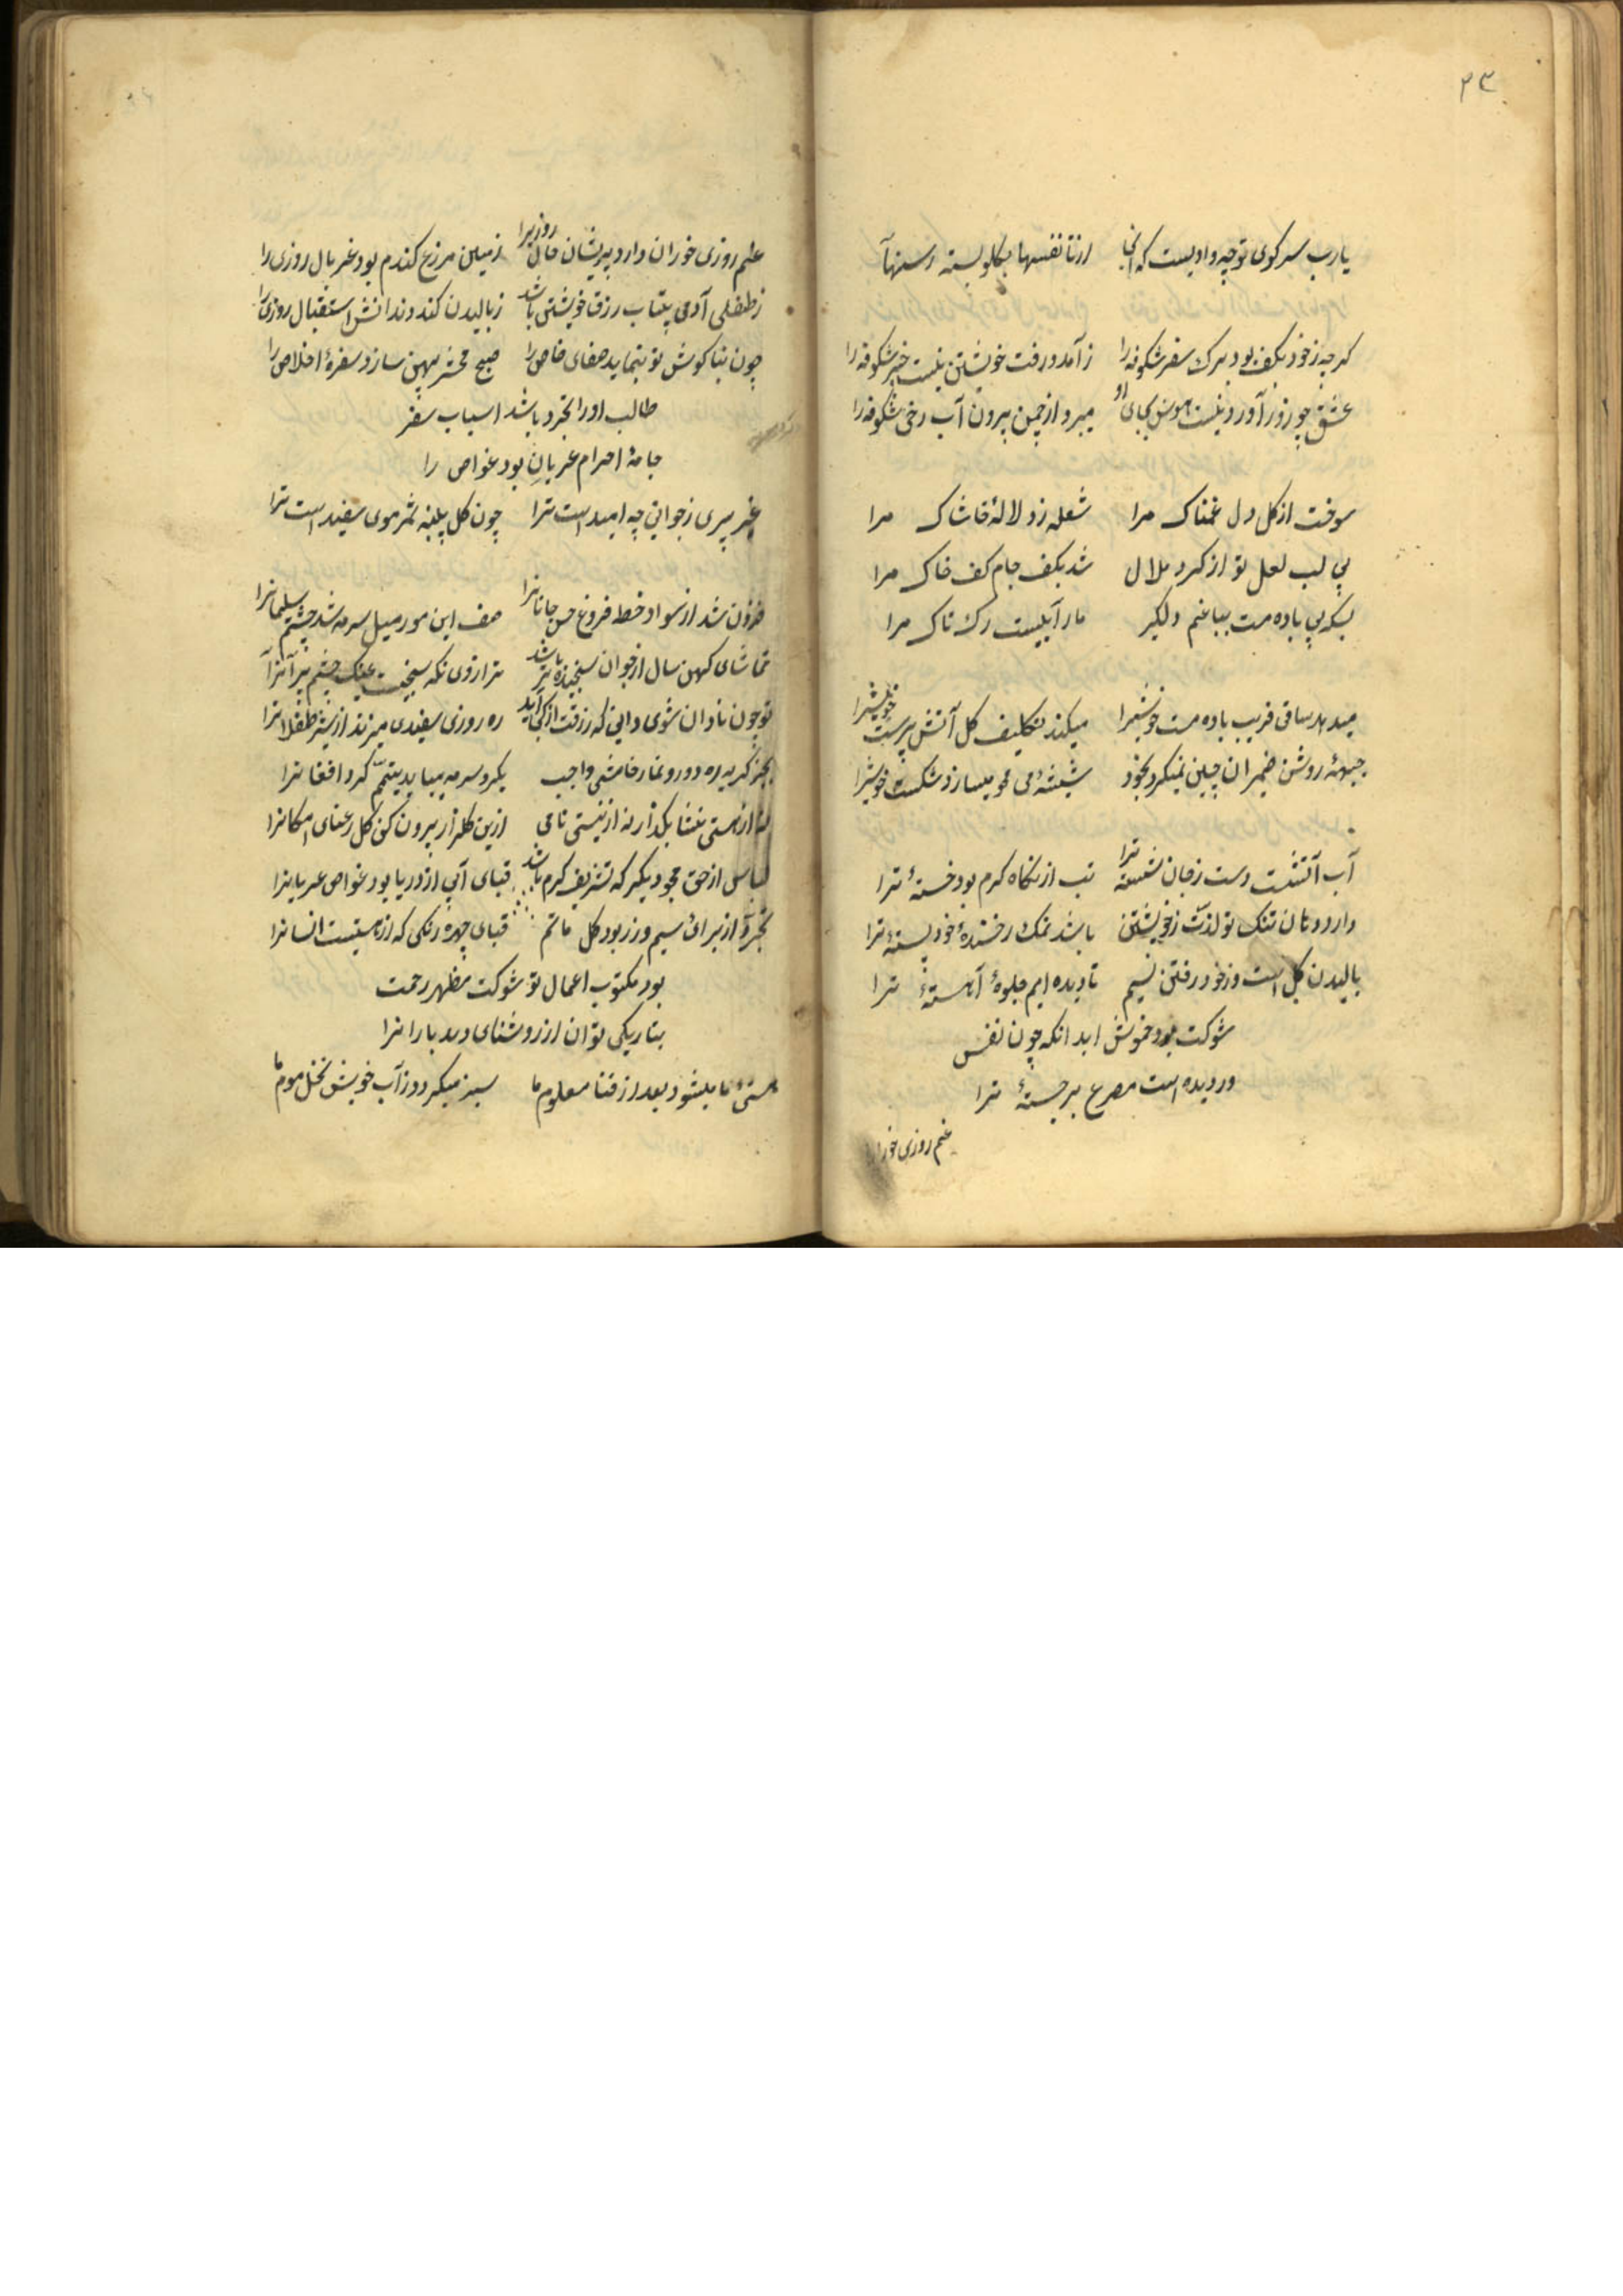 ۲۳
یارب سر کوی تو چه وادیست که آنجا از تا نفسها بکلو بسته رسنها
کرچه ز خود بکف بود برک سفر شکوفه را ز آمد و رفت خویشتن نیست خبر شکوفه را
عشق چو زور آورد نیست هوس بجای او میرود از چمن برون آب رخ شکوفه را
سوخت از کل دل غمناک مرا شعله زد لالهٔ خاشاک مرا
بی لب لعل تو از کرد ملال شد بکف جام کف خاک مرا
بسکه بی باده مست بباغم دلکیر مار آبیست رک تاک مرا
میدهد ساقی فریب باده مست خویشرا میکند تکلیف کل آتش پرست خویشرا
جبههٔ روشن ضمیران چین نمیکرد بخود شیشهٔ می مومیسازد شکست خویشرا
آب آتشست دست ز جان شسته ترا تب از نکاه کرم بود خستهٔ ترا
دارد دهان تنک تو لذت ز خویشتن باشد نمک ز خندهٔ خود پستهٔ ترا
بالیدن کل است و ز خود رفتن نسیم تا دیده ایم جلوهٔ آهستهٔ ترا
شوکت بود خموش ابد انکه چون نفس
دزدیده است مصرع برجستهٔ ترا
غم روزی خورانرا
غم روزی خوران دارد پریشان حال روزیرا زمین مزرع کندم بود غربال روزی را
ز طفلی آدمی بیتاب رزق خویشتن باشد ز بالیدن کند دندانش استقبال روزی را
چون بناکوش تو بنماید صفای خاص را صبح محشر پهن سازد سفرهٔ اخلاص را
طالب او را تجرد باشد اسباب سفر
جامهٔ احرام عریانی بود غواص را
غیر پیری ز جوانی چه امید است ترا چون کل پنبه ثمر موی سفید است ترا
فزون شد از سواد خط فروغ حسن جانانرا صف این مور میل سرمه شد چشم سلیمانرا
تماشای کهن سال از جوان سنجیده تر باشد ترازوی نکه سنجیست عینک چشم پیرانرا
تو چون نادان شوی دانی که رزقت از کجا آید ره روزی سفیدی میزند از شیر طفلانرا
بجز کریه ره دور و نماز خامشی واجب بکرد سرمه میباید تیمم کرد افغانرا
نه از هستی نشنا بکذار نه از نیستی نامی ازین کلزار بیرون کن کل رعنای امکانرا
لباس از حق مجو دیکر که تشریف کرم باشد قبای آبی از دریا بود غواص عریانرا
تجرد از برای سیم و زر بود کل ماتم قبای چهره رنکی که از هستیست انسانرا
بود مکتوب اعمال تو شوکت مظهر رحمت
بتاریکی توان از روشنای دید بارانرا
هستیٔ ما میشود بعد از فنا معلوم ما سبز میکردد ز آب خویش نخل موم ما